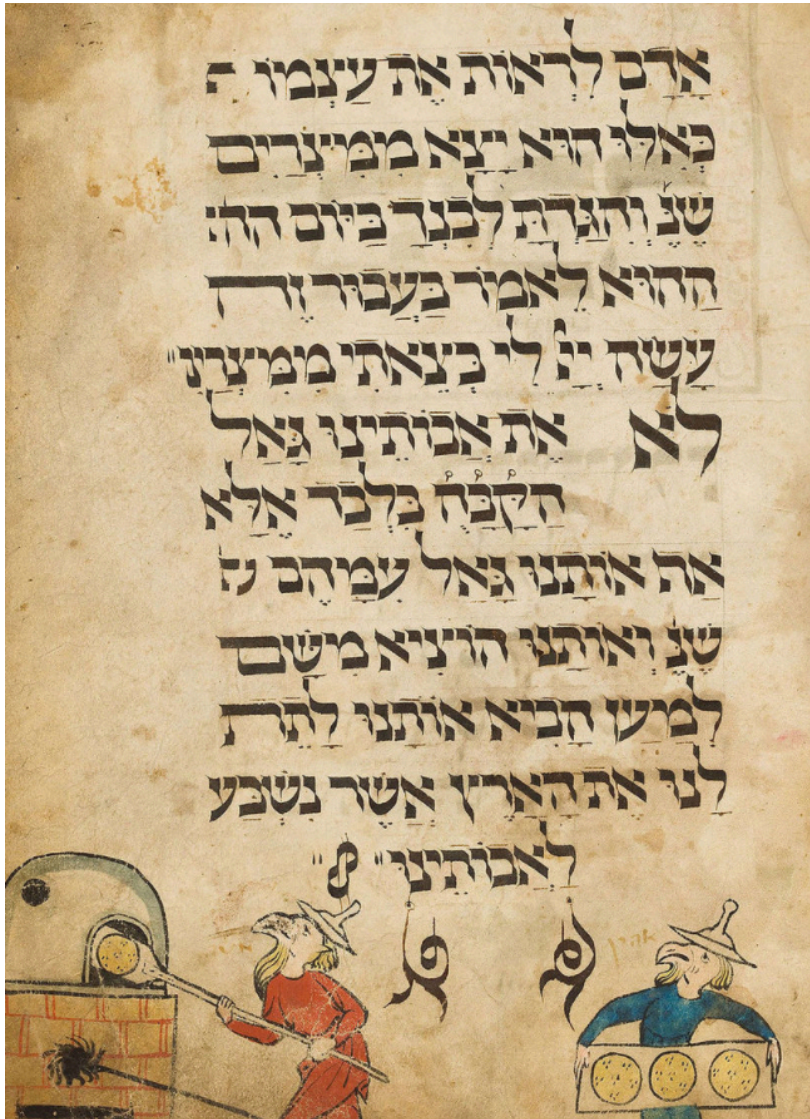 אָדָם לִרְאוֹת אֶת עַצְמוֹ
כְּאִלּוּ הוּא יָצָא מִמִּצְרַיִם
שֶׁנֶּ וְהִגַּדְתָּ לְבִנְךָ בַּיּוֹם הה
הַהוּא לֵאמֹר בַּעֲבוּר זֶה
עָשָׂה יְיָ לִי בְּצֵאתִי מִמִּצְרַי
לֹא אֶת אֲבוֹתֵינוּ גָּאַל
הַקָּבָּה בִּלְבַד אֶלָּא
אַת אוֹתָנוּ גָּאַל עִמָּהֶם
שֶׁנֶּ וְאוֹתָנוּ הוֹצִיא מִשָּׁם
לְמַעַן הָבִיא אוֹתָנוּ לָתֶת
לָנוּ אֶת הָאָרֶץ אֲשֶׁר נִשְׁבַּע
לַאֲבוֹתֵינוּ
אהרן